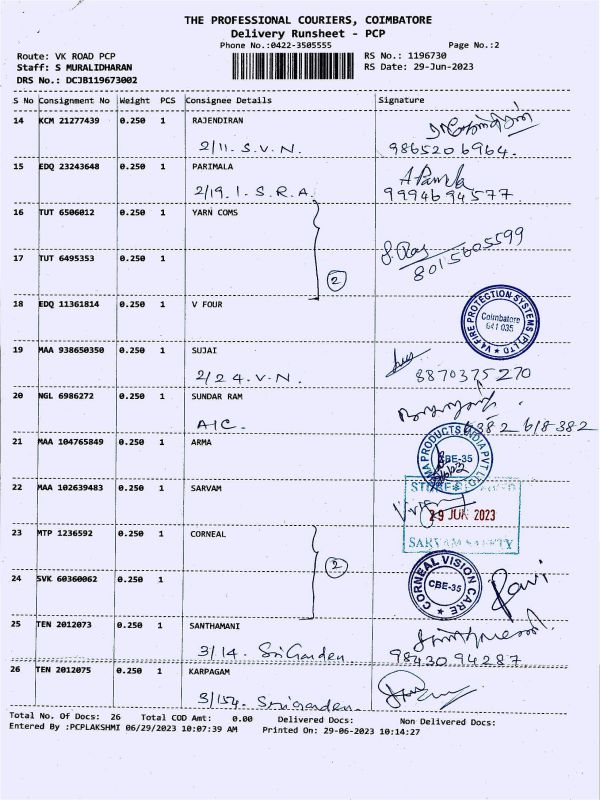 THE PROFESSIONAL COURIERS, COIMBATORE
Delivery Runsheet - PCP
Phone No.:0422-3505555 Page No.:2
Route: VK ROAD PCP RS No.: 1196730
Staff: S MURALIDHARAN RS Date: 29-Jun-2023
DRS No.: DCJB119673002
S No Consignment No Weight PCS Consignee Details Signature
14 KCM 21277439 0.250 1 RAJENDIRAN
2/11. S.V.N. 9865206964.
15 EDQ 23243648 0.250 1 PARIMALA
2/19. 1. S.R.A. 9994694577
16 TUT 6506012 0.250 1 YARN COMS
8015605599
17 TUT 6495353 0.250 1
2
18 EDQ 11361814 0.250 1 V FOUR
V4 FIRE PROTECTION SYSTEMS (P) LTD
Coimbatore
641 035
19 MAA 938650350 0.250 1 SUJAI
2/24.V.N. 8870375270
20 NGL 6986272 0.250 1 SUNDAR RAM
A/C. 6382618382
21 MAA 104765849 0.250 1 ARMA
ARMA PRODUCTS INDIA PVT LTD
CBE-35
22 MAA 102639483 0.250 1 SARVAM
29 JUN 2023
SARVAM SAFETY
23 MTP 1236592 0.250 1 CORNEAL
2
24 SVK 60360062 0.250 1
CORNEAL VISION CARE
CBE-35
Ravi
25 TEN 2012073 0.250 1 SANTHAMANI
3/14. Sri Garden. 9843094287
26 TEN 2012075 0.250 1 KARPAGAM
3/154. Sri garden.
Total No. Of Docs: 26 Total COD Amt: 0.00 Delivered Docs: Non Delivered Docs:
Entered By :PCPLAKSHMI 06/29/2023 10:07:39 AM Printed On: 29-06-2023 10:14:27